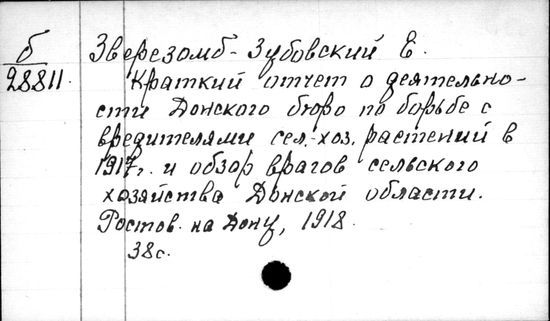 б
28811.
Зверезомб-Зубовский Е.
Краткий отчет о деятельно-
сти Донского бюро по борьбе с
вредителями сел.-хоз. растений в
1917г. и обзор врагов сельского
хозяйства Донской области.
Ростов. на Дону, 1918.
38с.